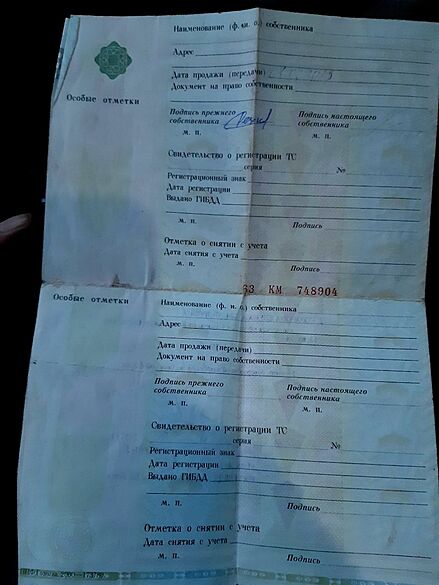 Наименование (ф. и. о.) собственника
Адрес
Дата продажи (передачи)
Документ на право собственности
Особые отметки
Подпись прежнего собственника
Подпись настоящего собственника
м. п.
м. п.
Свидетельство о регистрации ТС
серия №
Регистрационный знак
Дата регистрации
Выдано ГИБДД
м. п.
Подпись
Отметка о снятии с учета
Дата снятия с учета
м. п.
Подпись
63 КМ 748904
Особые отметки
Наименование (ф. и. о.) собственника
Адрес
Дата продажи (передачи)
Документ на право собственности
Подпись прежнего собственника
Подпись настоящего собственника
м. п.
м. п.
Свидетельство о регистрации ТС
серия №
Регистрационный знак
Дата регистрации
Выдано ГИБДД
м. п.
Подпись
Отметка о снятии с учета
Дата снятия с учета
м. п.
Подпись